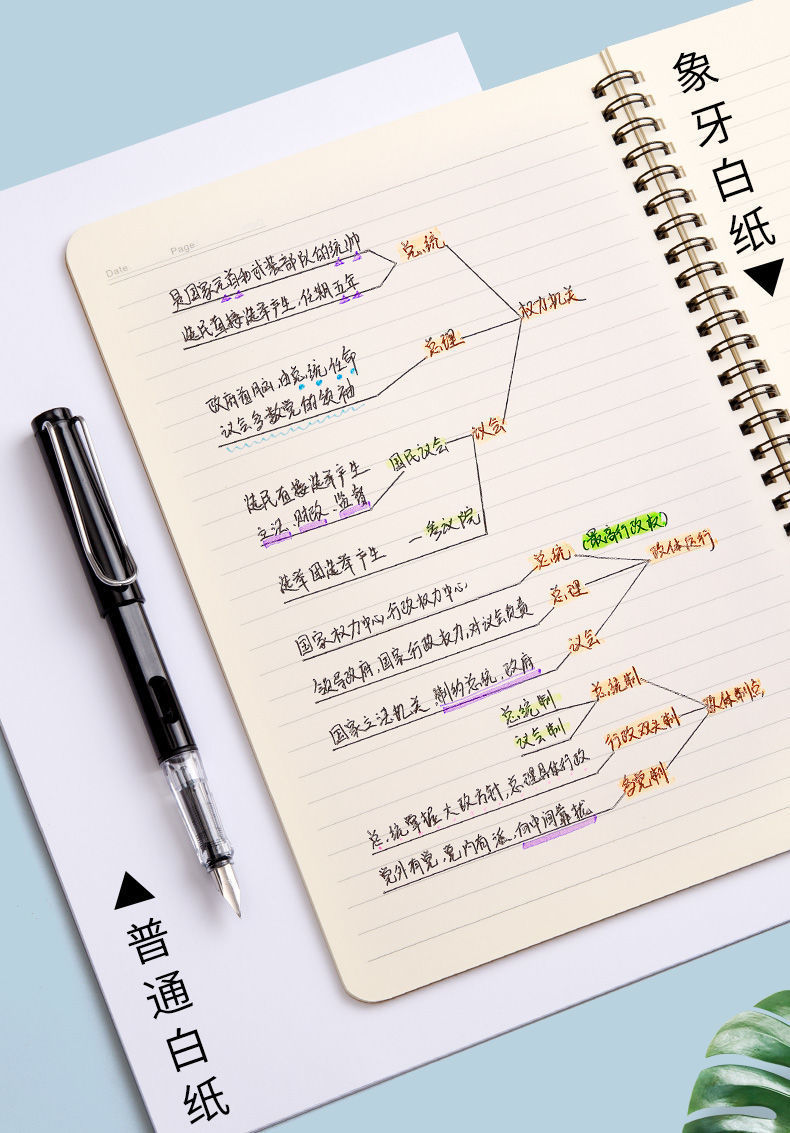 象牙白纸
Date
Page
是国家元首和武装部队的统帅
总统
选民直接选举产生,任期五年
权力机关
总理
政府首脑,由总统任命
议会多数党的领袖
议会
国民议会
选民直接选举产生
立法、财政、监督
参议院
选举团选举产生
(最高行政权)
总统
政体运行
国家权力中心,行政权力中心
总理
领导政府,国家行政权力,对议会负责
议会
国家立法机关,制约总统、政府
总统制
总统制
政体制点
议会制
行政双头制
总统掌握大政方针,总理具体行政
多党制
党外有党,党内有派,向中间靠拢
普通白纸